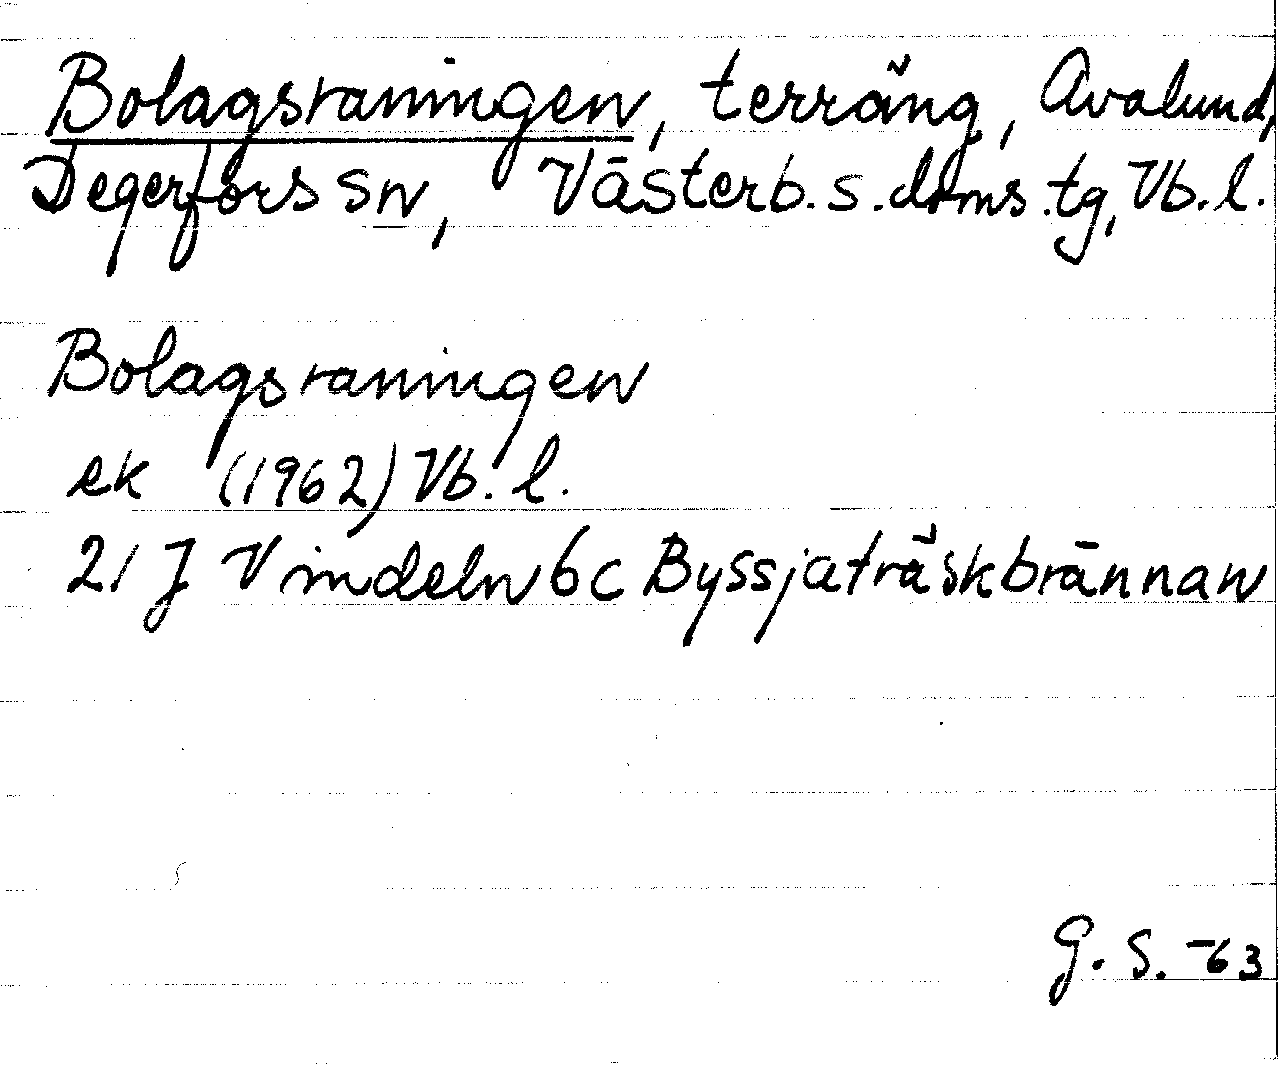 Bolagsraningen, terräng, Avalund,
Degerfors sn, Västerb. s. doms. tg, Vb. l.
Bolagsraningen
ek (1962) Vb. l.
21 J Vindeln 6 c Byssjaträskbrännan
G. S. -63